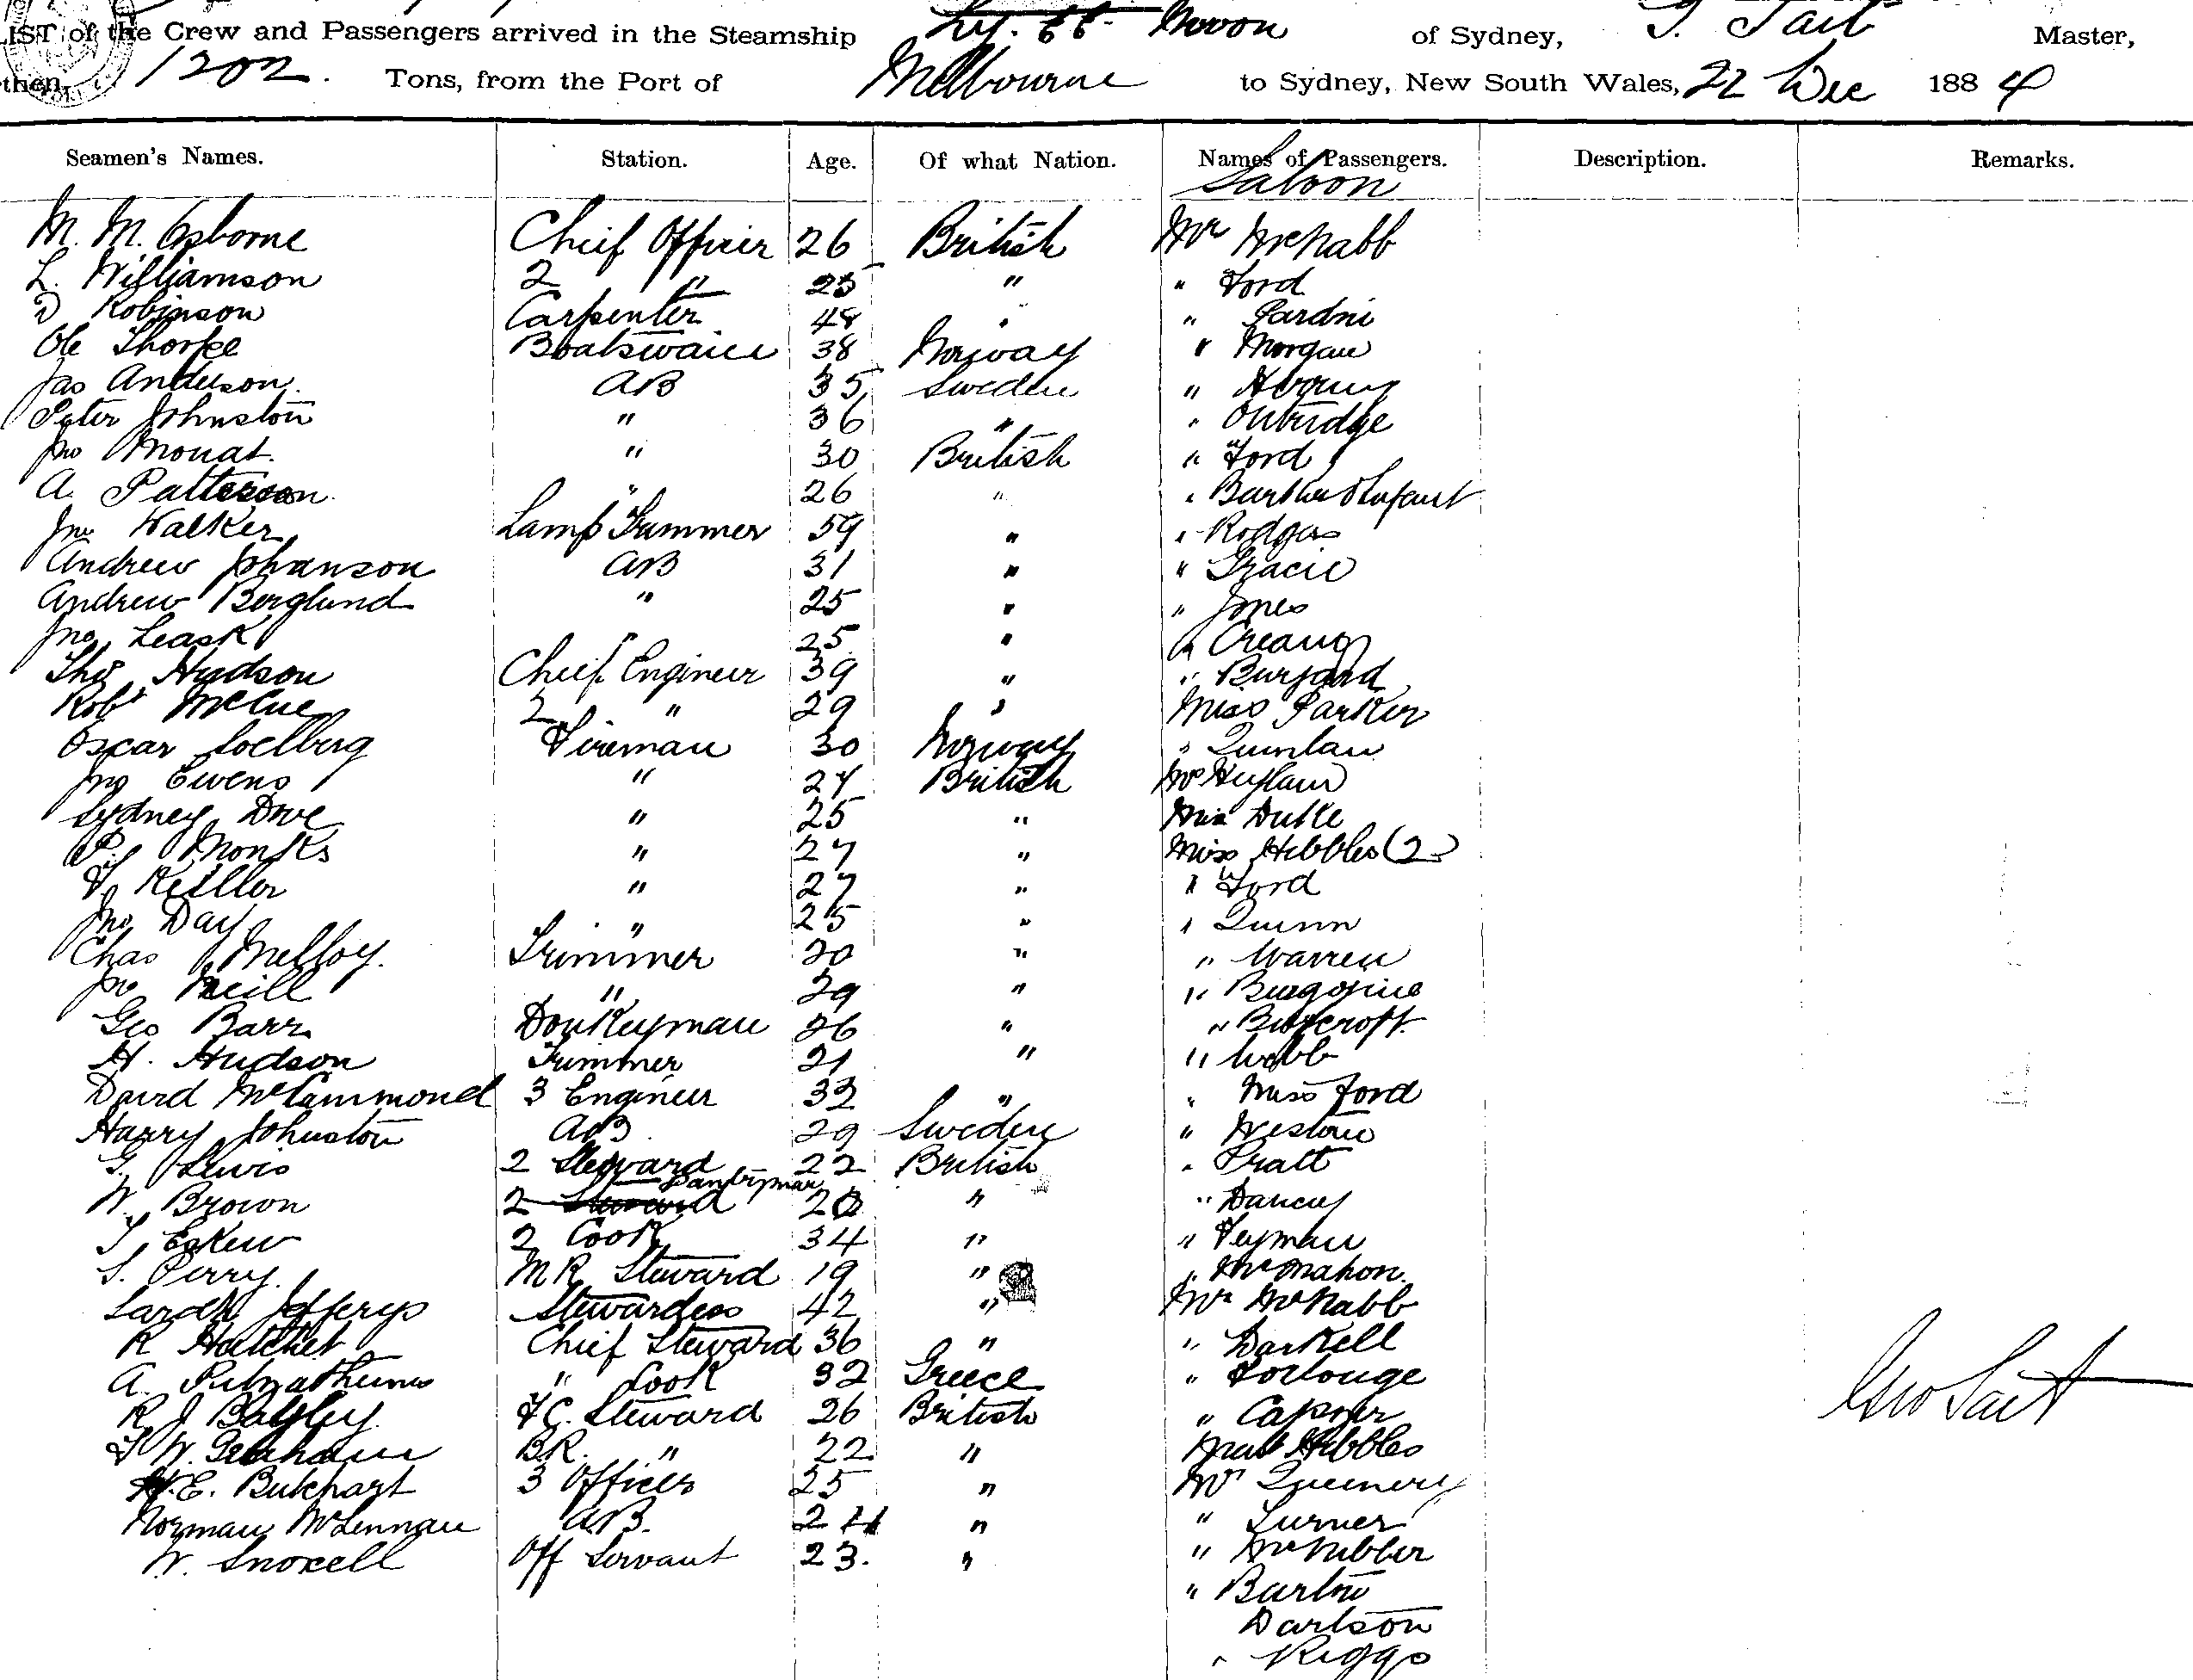 LIST of the Crew and Passengers arrived in the Steamship Moon of Sydney, G. Tait Master,
1202. Tons, from the Port of Melbourne to Sydney, New South Wales, 22 Dec 1884
Seamen's Names. Station. Age. Of what Nation. Names of Passengers. Description. Remarks.
Saloon
M. M. Osborne Chief Officer 26 British Mr McNabb
L. Williamson 2 " 25 " " Ford
D Robinson Carpenter 48 " "
Ole Thorpe Boatswain 38 Norway " Morgan
Jas Anderson. AB 35 Sweden "
Peter Johnston " 36 " " Outridge
Jno Mouat. " 30 British " Ford
A. Patterson " 26 " "
Jno Walker Lamp Trimmer 59 " " Rodgers
Andrew Johanson AB 31 " " Gracie
Andrew Berglund " 25 " " Jones
Jno Leask " 25 " "
Thos Hudson Chief Engineer 39 " "
Robt McCue 2 " 29 " Miss Parker
Oscar Soelberg Fireman 30 Norway " Quinlan
Jno Ewens " 27 British
Sydney Dove " 25 " Miss
P. Monks " 27 " Miss Hibbles (2)
Keiller " 27 " " Ford
Jno Day " 25 " " Quinn
Chas Melloy. Trimmer 20 " " Warren
Jno Neill " 29 " " Burgoyne
Geo Barr Donkeyman 26 " "
H. Hudson Trimmer 21 " " Webb
David McCammond 3 Engineer 32 " " Miss Ford
Harry Johnston AB 29 Sweden " Weston
G. Lewis 2 Steward 22 British " Pratt
W. Brown 2 Steward Pantryman " "
Eskew 2 Cook 34 " "
S. Perry. MR Steward 19 " " McMahon.
Sarah Jefferys Stewardess 42 " Mr McNabb
R Hatchet Chief Steward 36 " "
A. " Cook 32 Greece "
R. J. Bagley. F.C. Steward 26 British "
W. BR. " 22 " Hibbles
H. E. 3 Officer 25 " Mr
Norman McLennan AB. " " Turner
W. Snoxell Off Servant 23. " "
" Barton
Darlson
" Riggs
Geo Tait